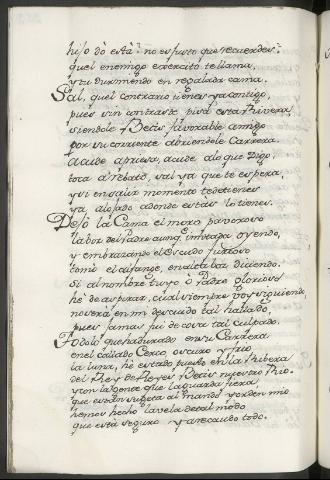 hijo dò està? no es justo que recuerdes?
quel enemigo exercitò te llama,
y tu durmiendo en regalada cama.
Sal, quel contrario tienes ya contigo,
pues sin contraste pisa esta Rivera,
siendole Betis favorable amigo
por su corriente abriendole Carrera
acude apriesa, acude alo que digo,
toca à rebato, sal ya que te espera,
y si en salir momento te detienes
ya alojado adonde estàs lo tienes.
Dejò la Cama el moro pavoroso
la voz del Padre aunq. imitada oyendo,
y embrazando el Escudo furioso
tomò el alfange, en alta boz diciendo.
Si al nombre tuyo ò Padre glorioso
hè de aspirar, cual siempre voy siguiendo
no serà en mi descuido tal hallado,
pues jamas fui de cosa tal culpado.
Todo lo que ha durado en su Carrera
en el callado Cerco, oscuro y frio
la luna, hè estado puesto en la Ribera
del Rey de Reyes Betis nuestro Rio
y con la gente que la guarda fiera,
que están sugeta al mando y orden mio
hemos hecho la vela de tal modo
que està seguro y a recaudo todo.